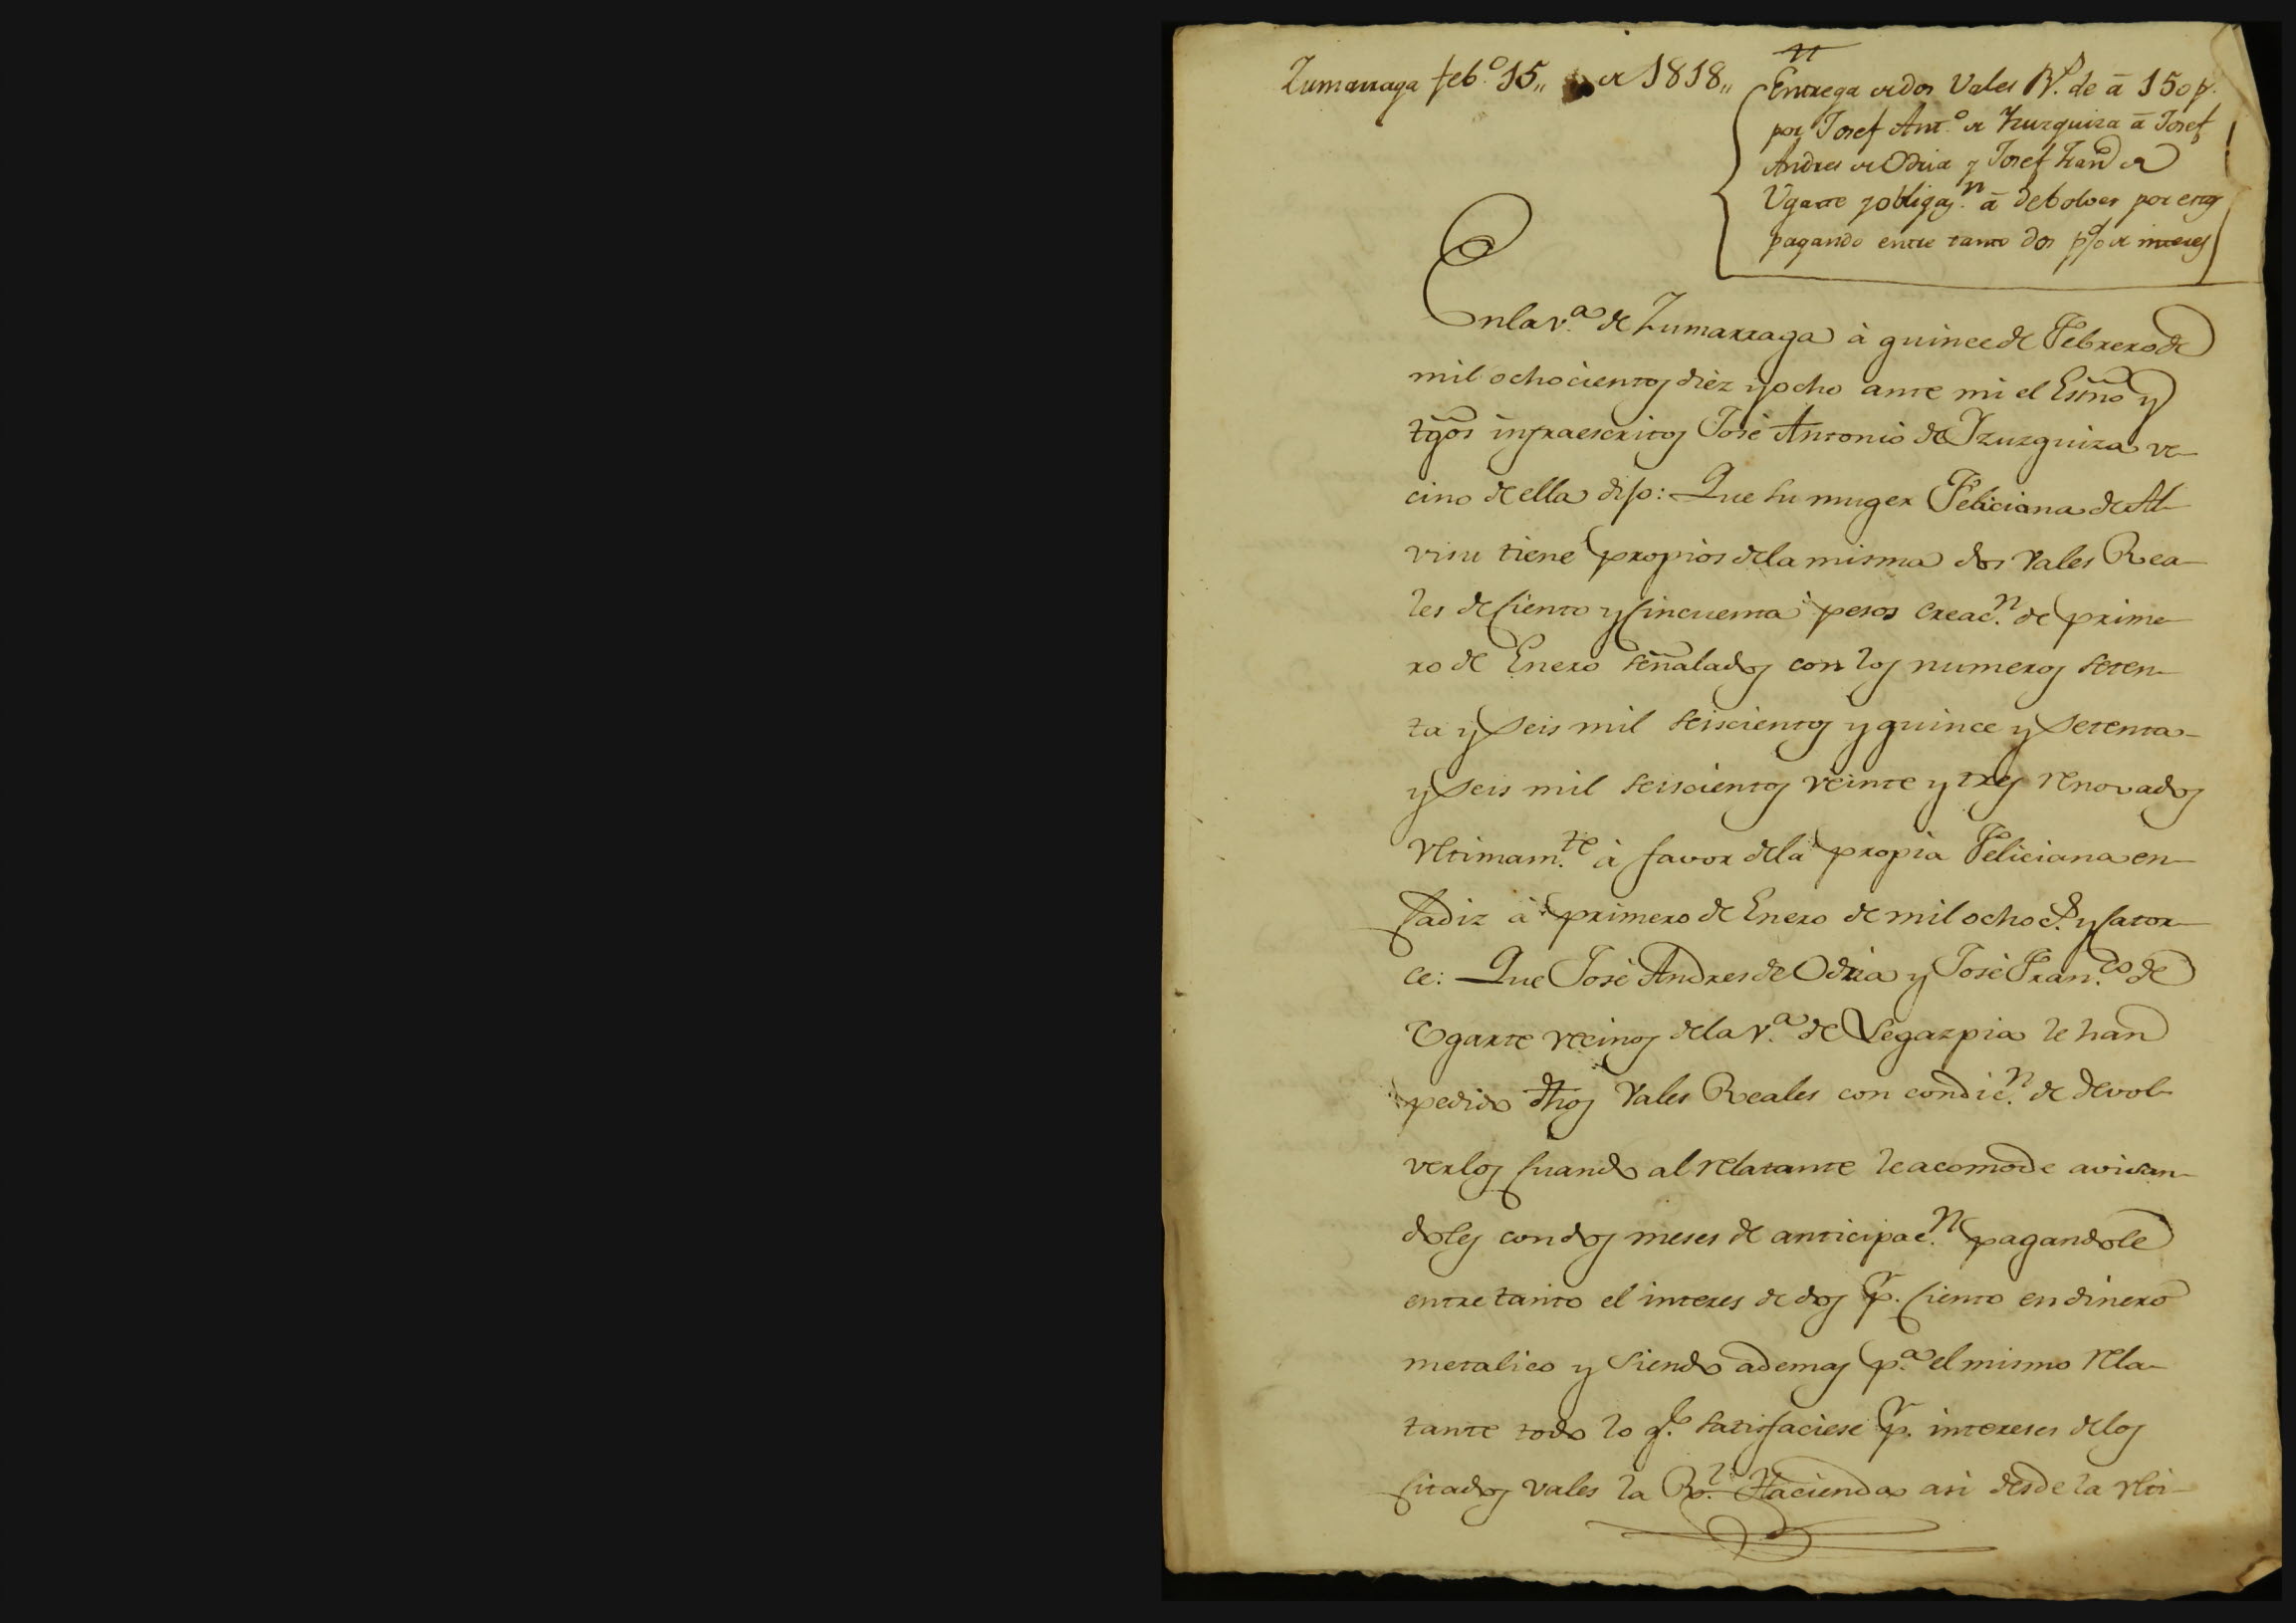 Zumarraga feb.º 15,, de 1818,,
Entrega de dos Vales R.s de â 150 p.
por Josef Ant.º de Yzuzquiza â Josef
Andres de Odria y Josef Fran.co de
Ugarte y obligaz.n â debolver por estos
pagando entre tanto dos p% de interes
En la v.a de Zumarraga à quince de Febrero de
mil ochocientos diez y ocho ante mi el Esño y
tgos infraescritos José Antonio de Yzuzquiza ve-
cino de ella dijo: Que su muger Feliciana de Al-
visu tiene propios de la misma dos Vales Rea-
les de Ciento y Cincuenta pesos creac.n de prime-
ro de Enero señalados con los numeros seten-
ta y Seis mil seiscientos y quince y Setenta-
y Seis mil seiscientos veinte y tres renovados
Vltimam.te à favor de la propia Feliciana en-
Cadiz à primero de Enero de mil ochoc.s y Cator-
ce: Que José Andres de Odria y José Fran.co de
Ugarte vecinos de la v.a de Legazpia le han
pedido dhos Vales Reales con condic.n de devol-
verlos Cuando al relatante le acomode avisan-
doles con dos meses de anticipac.n pagandole
entre tanto el interes de dos p.r Ciento en dinero
metalico y Siendo ademas p.a el mismo rela-
tante todo lo q.e satisfaciese p.r intereses de los
Citados vales la R.l Hacienda asi desde la Vlti-